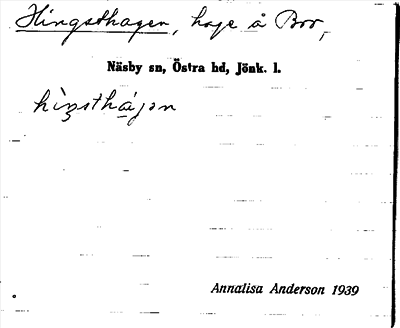 Hingsthagen, hage å Boo,
Näsby sn, Östra hd, Jönk. l.
hìŋsthá̱jən
Annalisa Anderson 1939